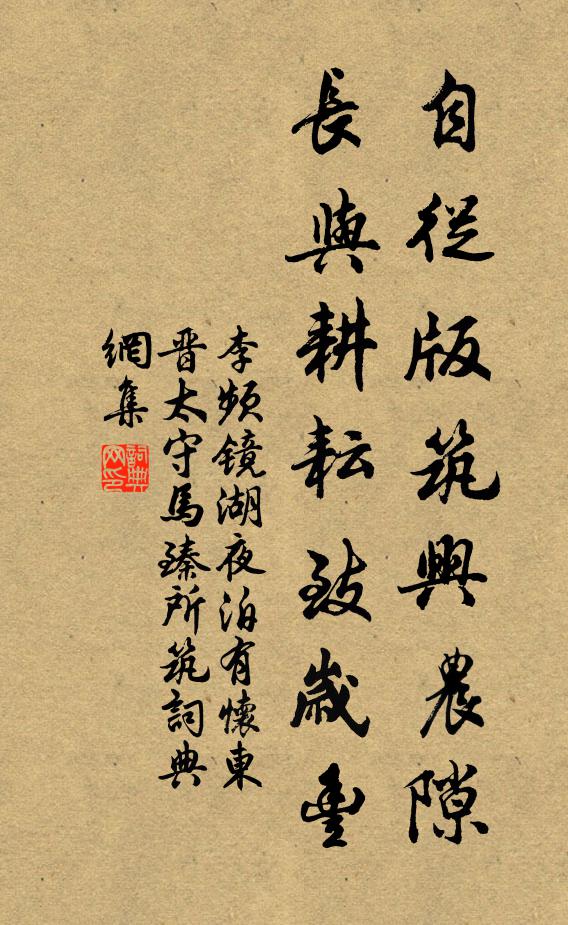 自從版筑興農隙
長與耕耘致歲豐
李頻鏡湖夜泊有懷東
晋太守馬臻所筑詞典
網集
詞典
网印